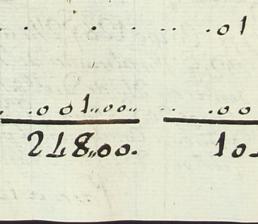 .01
.001"00" .00
248"00. 10